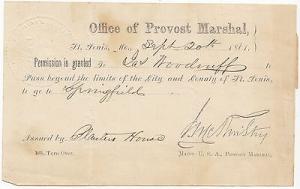 Office of Provost Marshal,
St. Louis, Mo., Sept 20th 1861.
Permission is granted to Jas Woodruff to
Pass beyond the limits of the City and County of St. Louis,
to go to Springfield
Issued by Planters House
Major U. S. A., Provost Marshal.